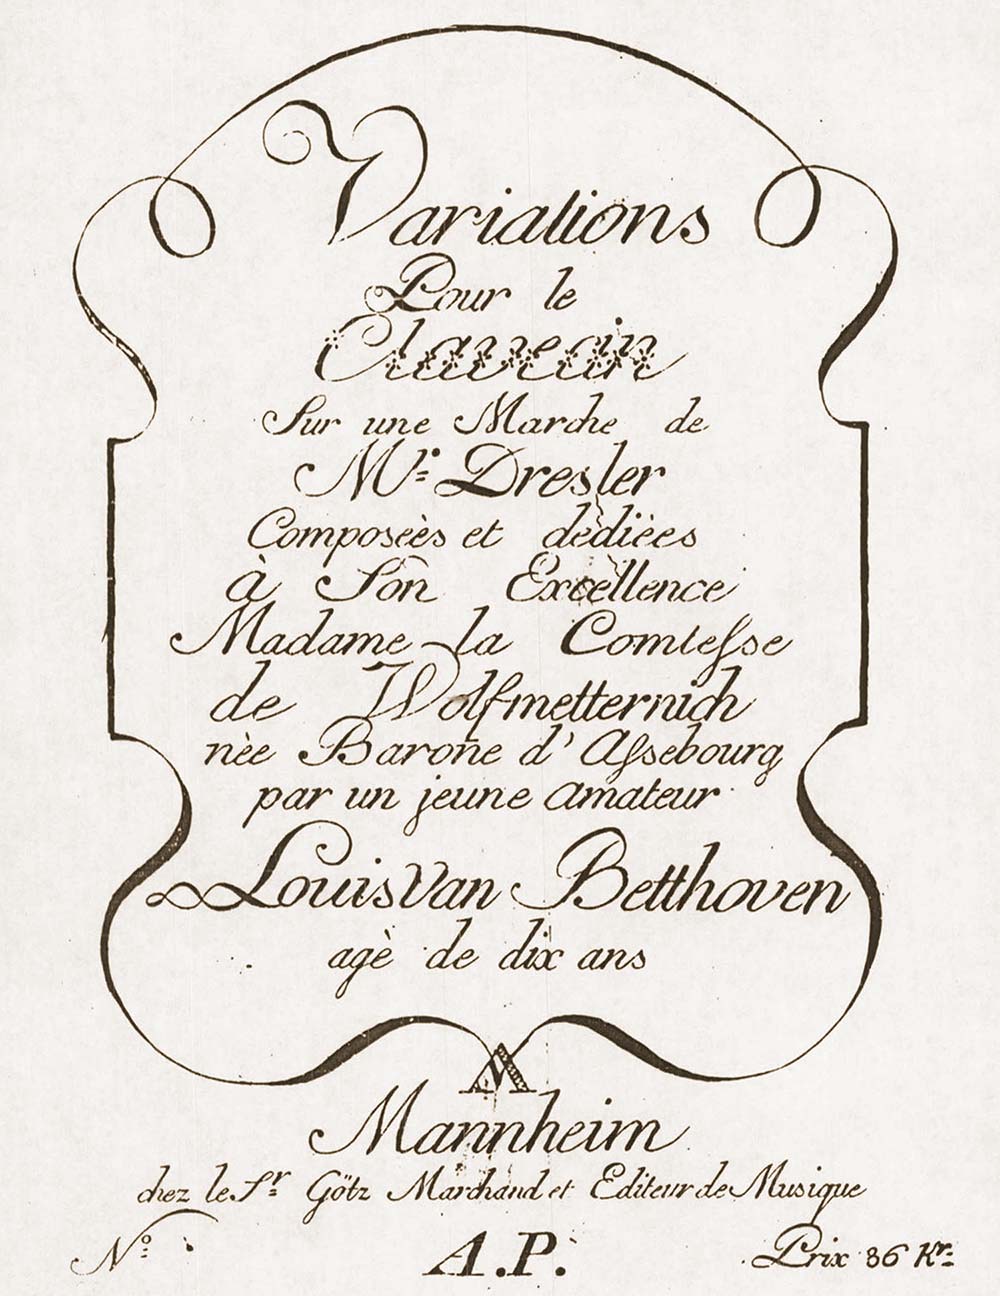 Variations
Pour le
Clavecin
Sur une Marche de
Mr. Dresler
Composèès et dèdièes
à Son Excellence
Madame la Comtesse
de Wolfmetternich
nèe Barone d'Assebourg
par un jeune amateur
Louis Van Betthoven
agè de dix ans
M
Mannheim
chez le Sr. Götz Marchand et Editeur de Musique
No. A.P. Prix 36 Kr.